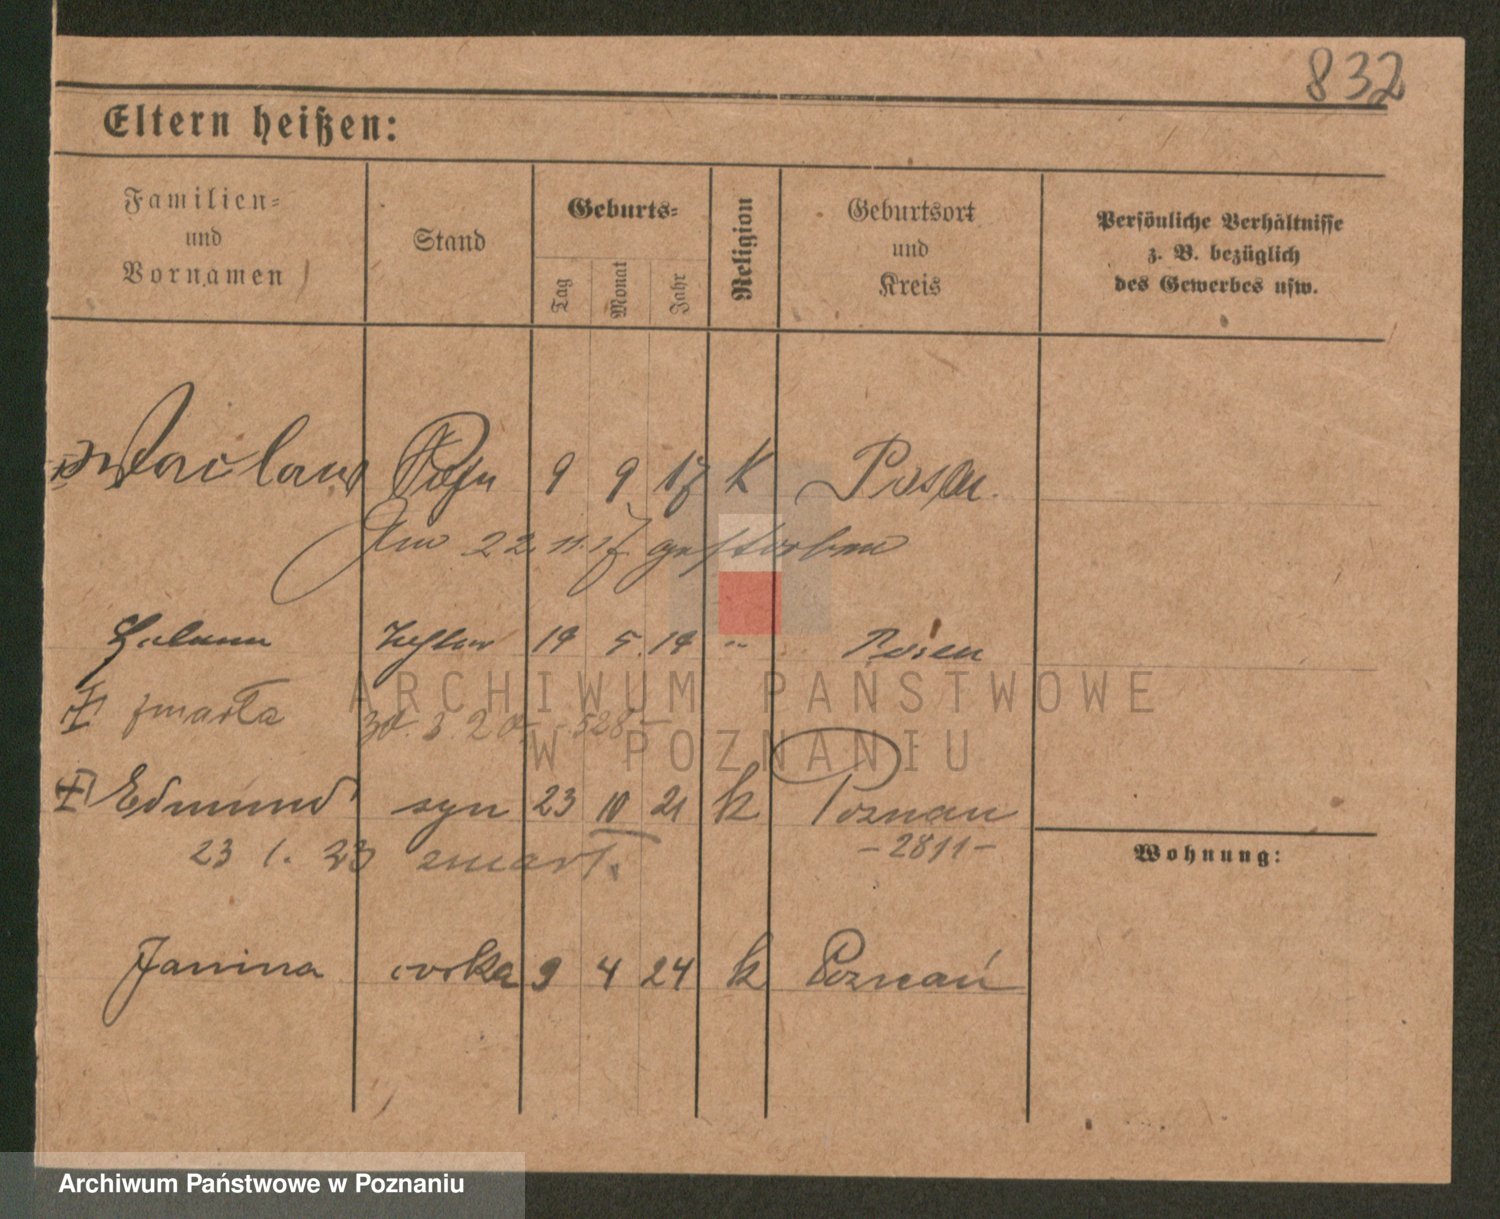 832
Eltern heißen:
Familien=
und
Vornamen
Stand
Geburts=
Tag
Monat
Jahr
Religion
Geburtsort
und
Kreis
Persönliche Verhältnisse
z. B. bezüglich
des Gewerbes usw.
Waclaw Sohn 9 9 17 K Posen.
Am 22. 11. 17 gestorben
14 5. 19 " Posen
zmarła
Edmund syn 23 10 21 k Poznan
23 1. 23 zmarł. - 2811 -
Wohnung:
Janina córka 9 4 24 k Poznań
ARCHIWUM PAŃSTWOWE
W POZNANIU
Archiwum Państwowe w Poznaniu